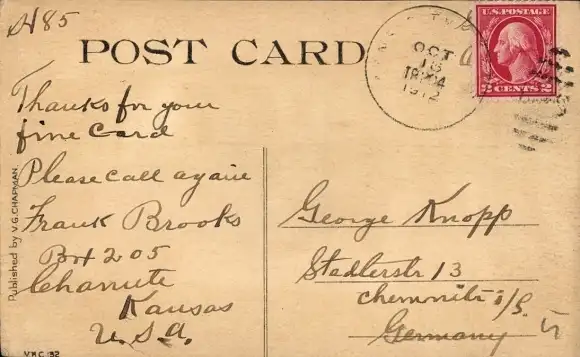 A485
POST CARD
OCT
1912
U.S. POSTAGE
2 CENTS 2
Thanks for your
fine Card
Please call again
Frank Brooks
Box 205
Chanute
Kansas
U.S.A.
Published by V.G. CHAPMAN
George Knopp
Stadlerstr 13
Chemnitz i/S.
Germany